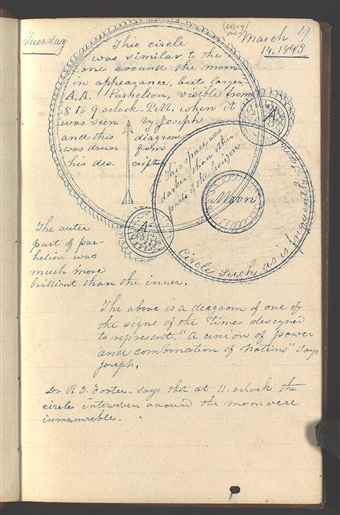 Tuesday
March 19
14. 1843
This circle
was similar to the
one around the moon
in appearance, but larger
A. A. Parhelion, visible from
8 to 9 oclock P.M. when it
was seen by Joseph
and this diagram
was drawn from
his des cription
A
This space was
darker than other
parts of the horizon
Moon
A
Circle such as is frequently seen
The outer
part of par-
helion was
much more
brilliant than the inner.
The above is a diagram of one of
the signs of the times designed
to represent "A union of power
and combination of Nations" says
Joseph.
Dr. R. D. Foster says that at 11 oclock the
circles interwoven around the moon were
innumerable.